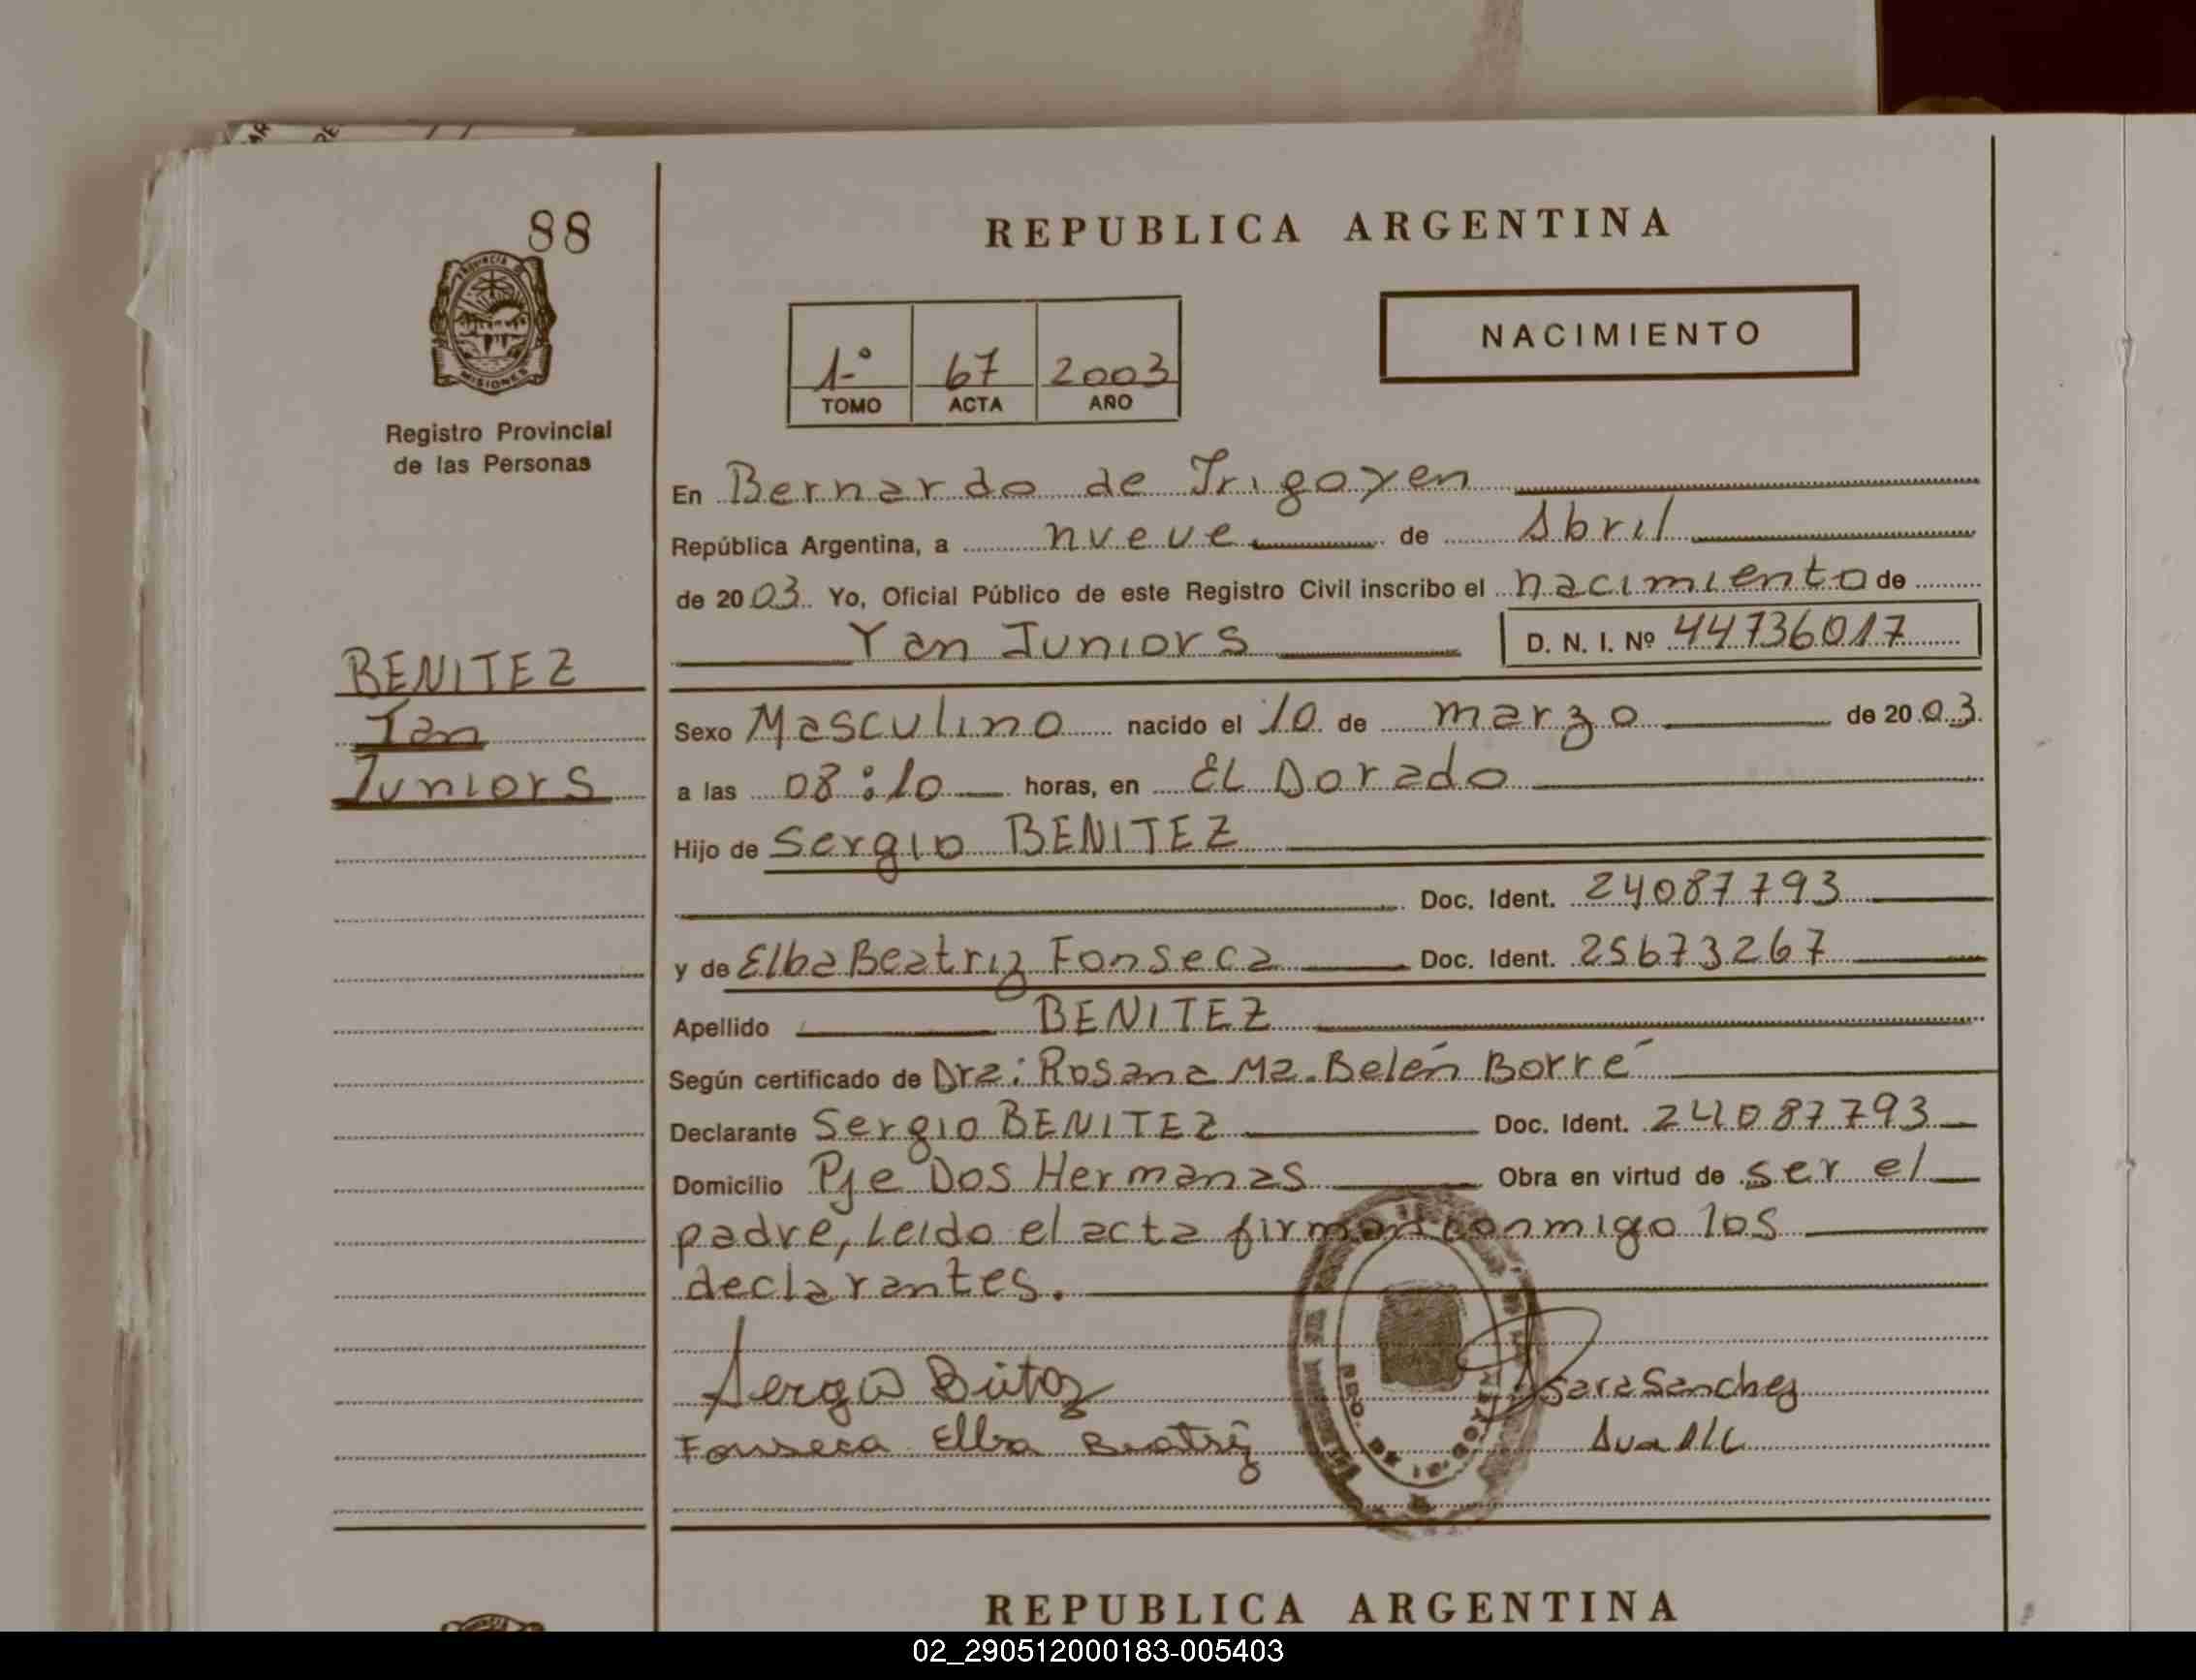 88
PROVINCIA DE
MISIONES
Registro Provincial
de las Personas
REPUBLICA ARGENTINA
1º 67 2003
TOMO ACTA AÑO
NACIMIENTO
En Bernardo de Irigoyen
República Argentina, a nueve de Abril
de 2003. Yo, Oficial Público de este Registro Civil inscribo el nacimiento de
Yan Juniors D. N. I. Nº 44736017
BENITEZ
Ian
Juniors
Sexo Masculino nacido el 10 de marzo de 2003.
a las 08:10 horas, en EL Dorado
Hijo de Sergio BENITEZ
Doc. Ident. 24087793
y de Elba Beatriz Fonseca Doc. Ident. 25673267
Apellido BENITEZ
Según certificado de Dra: Rosana Ma. Belén Borré
Declarante Sergio BENITEZ Doc. Ident. 24087793
Domicilio Pje Dos Hermanas Obra en virtud de ser el
padre, Leido el acta firman conmigo los
declarantes.
Sergio
Sara Sanchez
Fonseca Elba Beatriz
REPUBLICA ARGENTINA
02_290512000183-005403